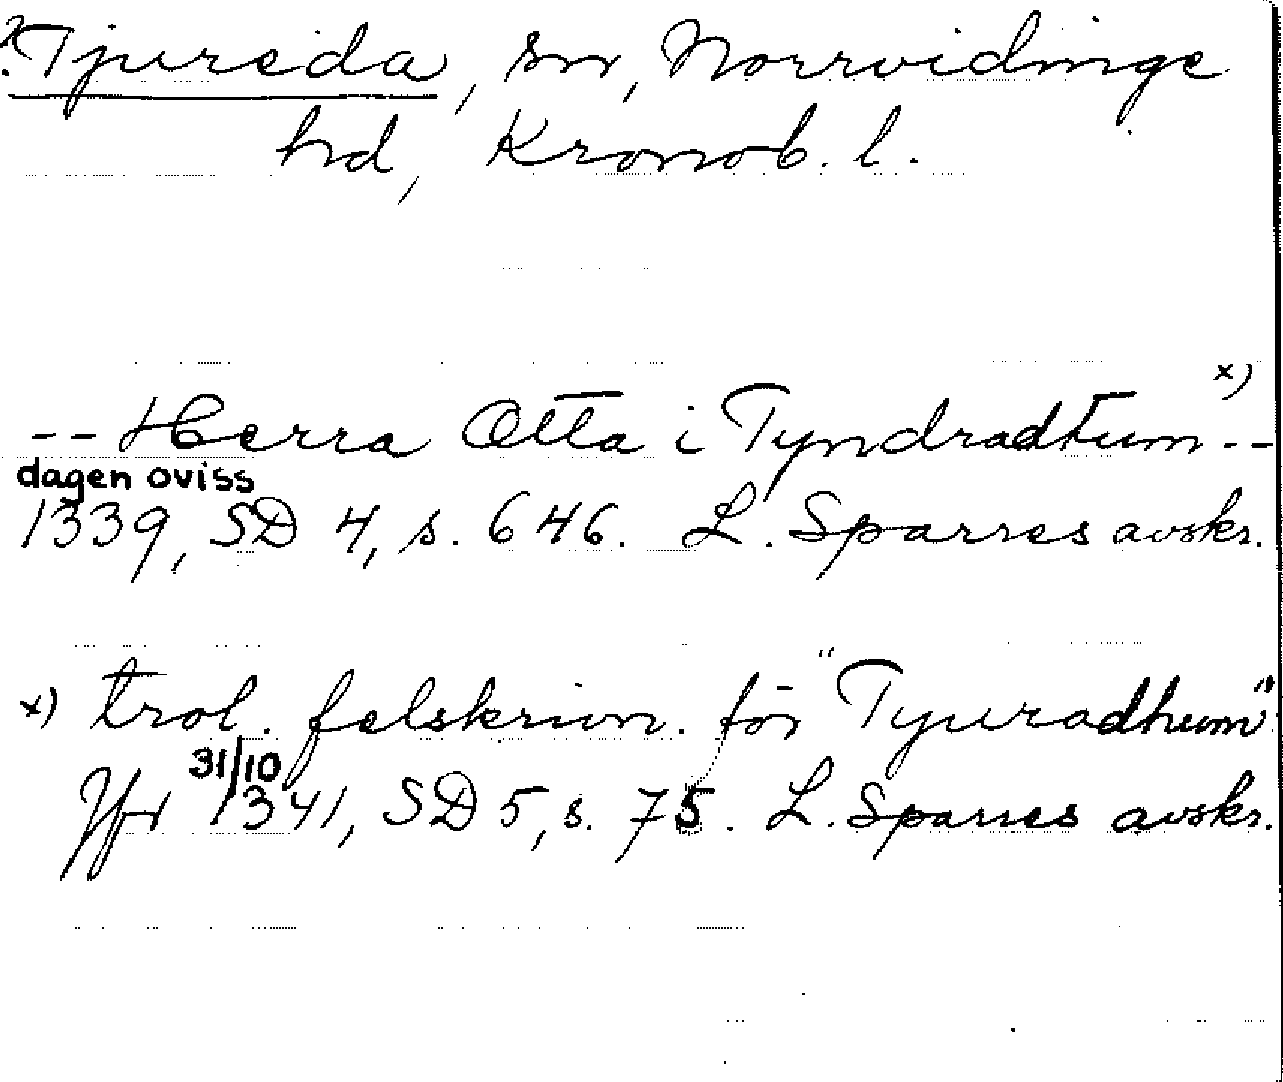 ?Tjureda, sn, Norrvidinge
hd, Kronob. l.
-- Herra Otta i Tyndradtum x) --
dagen oviss
1339, SD 4, s. 646. L. Sparres avskr.
x) trol. felskrivn. för "Tyuradhum"
31/10
Jfr 1341, SD 5, s. 75. L. Sparres avskr.